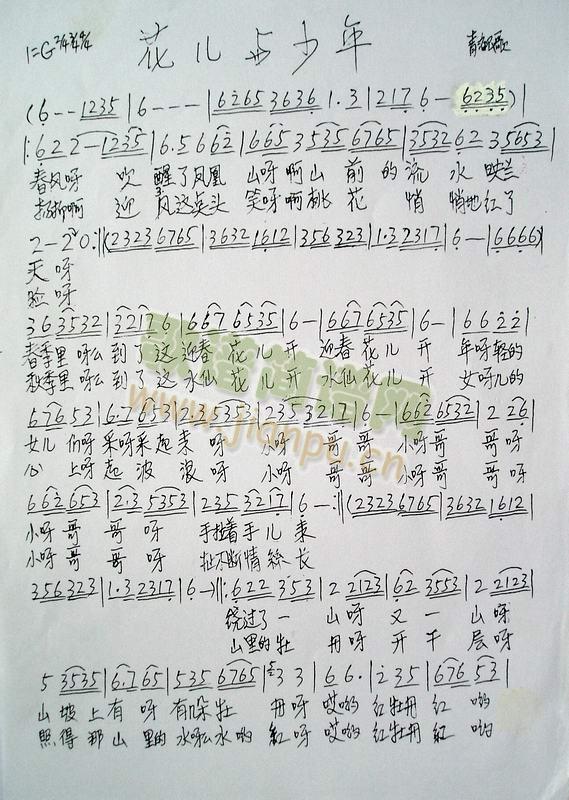 花儿与少年
1=G 2/4 3/4 4/4 青海民歌
(6--1235|6---|6265 3636 1·3|217 6-6235)|
|:622 2-1235|6·5 662|6653 535 6765|3532 62 3 5653|
春风呀 吹 醒了凤凰 山呀啊山 前 的 流 水 映兰
杨柳啊 迎 风这点头 笑呀啊桃 花 悄 悄地红了
2-20:‖(2323 6765|3632 1612|356323|1·32317|6-|6666)
天呀
脸呀
363532|32176|667 6535|6-|667 6535|6-|6622|
春季里 呀么 到了 这 迎春 花儿开 迎春 花儿 开 年呀轻的
秋季里 呀么 到了 这 水仙 花儿开 水仙 花儿 开 女呀儿的
67653|6·7653|2·35353|2353217|6-|6626532|2 26|
女儿 们呀 采呀采起来 呀 小呀 哥 哥 小呀哥 哥呀
心 上呀 起 波 浪 呀 小呀 哥 哥 小呀哥 哥呀
662653|2·35353|2353217|6-:‖(23236765|3632 1612|
小呀哥 哥 呀 手拉着手儿来
小呀哥 哥 呀 扯不断情絲长
356323|1·32317|6-)‖:622 353|2 2123|62 3553|2 2123|
绕过了一 山呀 又一 山呀
山里的牡 丹呀 开千 层呀
5 3535|6·765|535 6765|3 3|66·|235|676 53|
山坡上有呀 有朵牡 丹呀 哎哟 红牡丹 红 哟
照得那山里的 水呀么水哟 紅呀 哎哟 红牡丹 紅 哟
歌谱简谱网
www.jianpu.cn